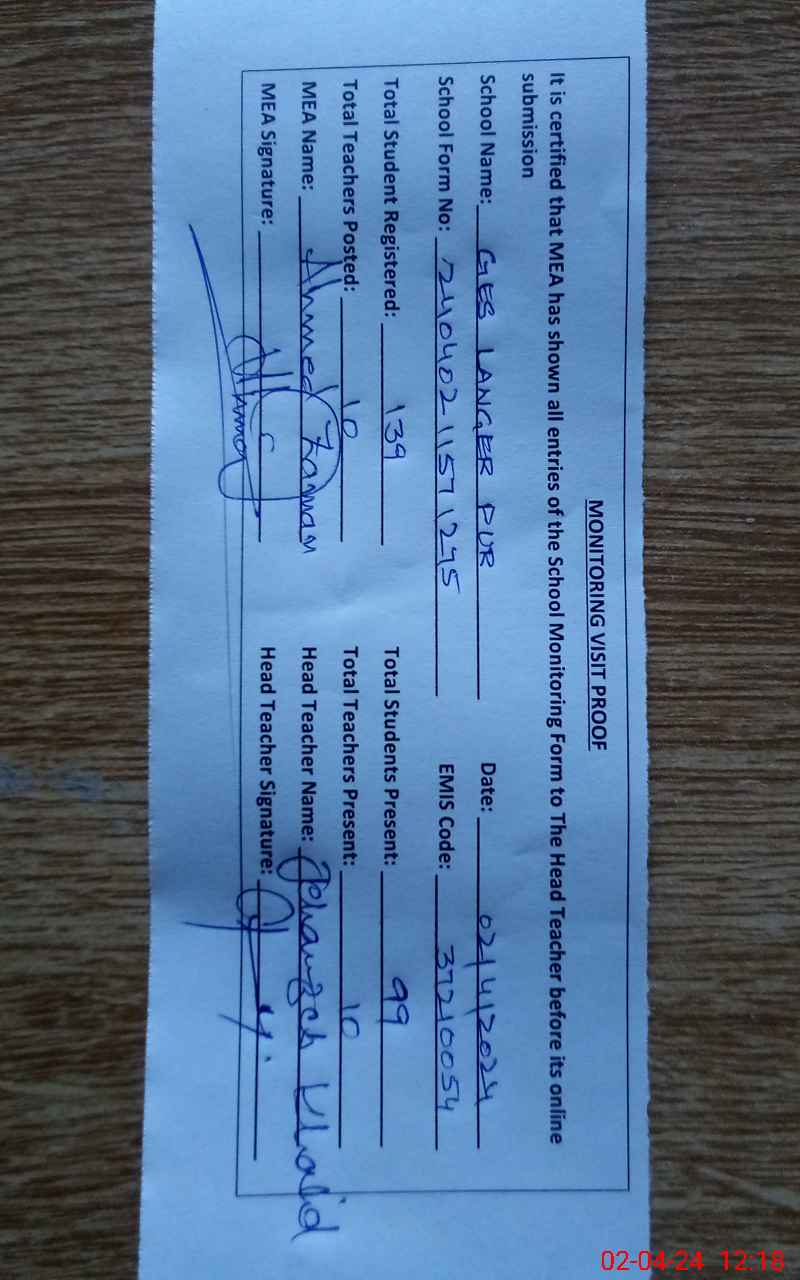 MONITORING VISIT PROOF
It is certified that MEA has shown all entries of the School Monitoring Form to The Head Teacher before its online
submission
School Name: GES LANGER PUR Date: 02/4/2024
School Form No: 2404021157 1275 EMIS Code: 37210054
Total Student Registered: 139 Total Students Present: 99
Total Teachers Posted: 10 Total Teachers Present: 10
MEA Name: Ahmed Zaman Head Teacher Name: Khalid
MEA Signature: Head Teacher Signature:
02-04-24 12:18